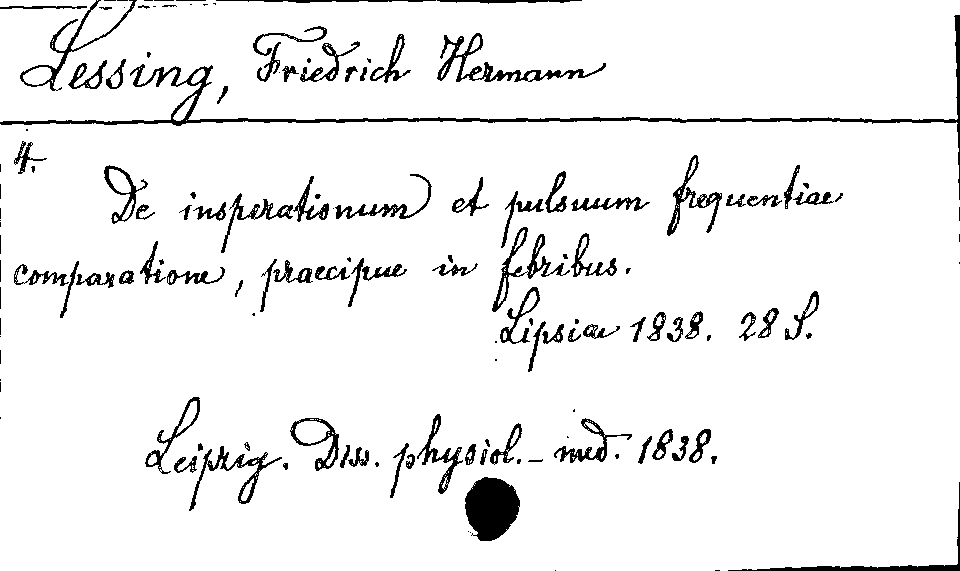 Lessing, Friedrich Hermann
4.
De inspirationum et pulsuum frequentiae
comparatione, praecipue in febribus.
Lipsiae 1838. 28 S.
Leipzig. Diss. physiol.-med. 1838.